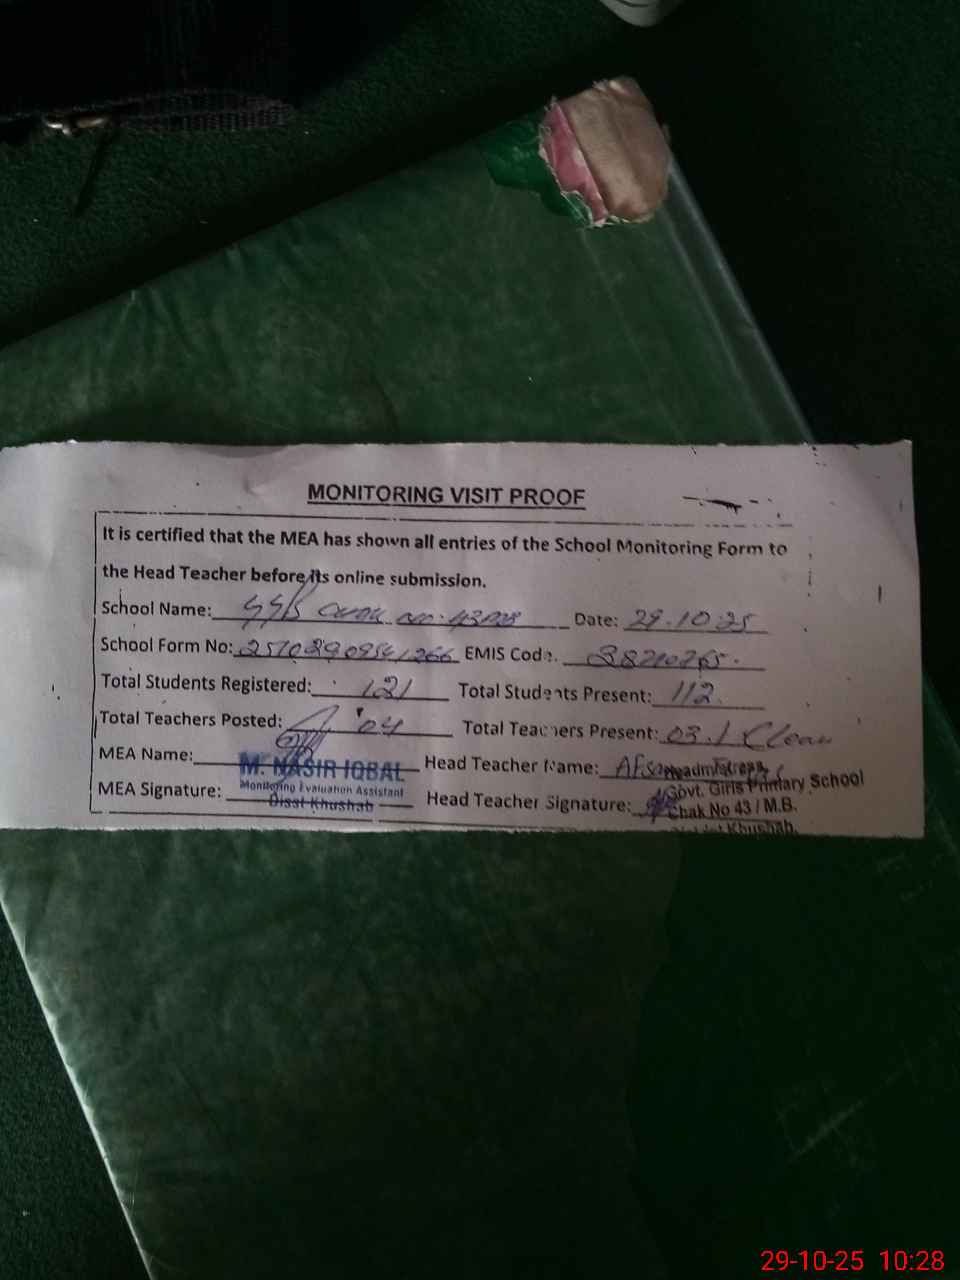 MONITORING VISIT PROOF
It is certified that the MEA has shown all entries of the School Monitoring Form to
the Head Teacher before its online submission.
School Name: Chak No. 43 MB Date: 29.10.25
School Form No: EMIS Code. 38210265.
Total Students Registered: 121 Total Students Present: 112
Total Teachers Posted: 04 Total Teachers Present: 03.1 Cleav
MEA Name: M. NASIR IQBAL Head Teacher Name:
Monitoring Evaluation Assistant
Headmistress
Govt. Girls Primary School
MEA Signature: Disst Khushab Head Teacher Signature: Chak No 43 / M.B.
District Khushab.
29-10-25 10:28